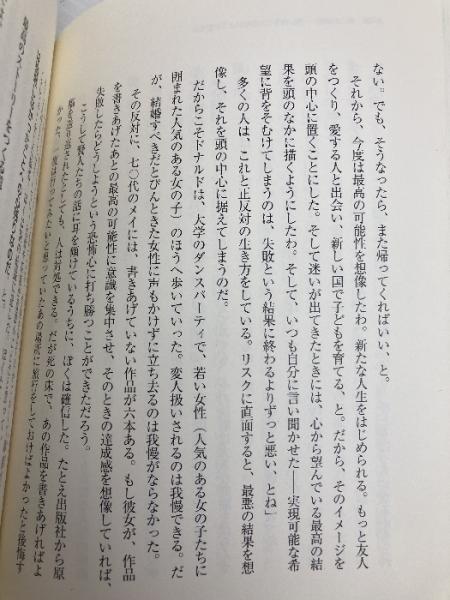 ない。でも、そうなったら、また帰ってくればいい、と。
それから、今度は最高の可能性を想像したわ。新たな人生をはじめられる。もっと友人
をつくり、愛する人と出会い、新しい国で子どもを育てる、と。だから、そのイメージを
頭の中心に置くことにした。そして迷いが出てきたときには、心から望んでいる最高の結
果を頭のなかに描くようにしたわ。そして、いつも自分に言い聞かせた――実現可能な希
望に背をそむけてしまうのは、失敗という結果に終わるよりずっと悪い、とね」
多くの人は、これと正反対の生き方をしている。リスクに直面すると、最悪の結果を想
像し、それを頭の中心に据えてしまうのだ。
だからこそドナルドは、大学のダンスパーティで、若い女性（人気のある女の子たちに
囲まれた人気のある女の子）のほうへ歩いていった。変人扱いされるのは我慢できる。だ
が、結婚すべきだとぴんときた女性に声もかけずに立ち去るのは我慢がならなかった。
その反対に、七〇代のメイには、書きあげていない作品が六本ある。もし彼女が、作品
を書きあげたあとの最高の可能性に意識を集中させ、そのときの達成感を想像していれば、
失敗したらどうしようという恐怖心に打ち勝つことができただろう。
こうして賢人たちの話に耳を傾けているうちに、ぼくは確信した。たとえ出版社から原
稿を送り返されたとしても、人は対処できる。だが死の床で、あの作品を書きあげればよ
かった、一度は行ってみたいと思っていたあの場所に旅行をしておけばよかったと後悔す